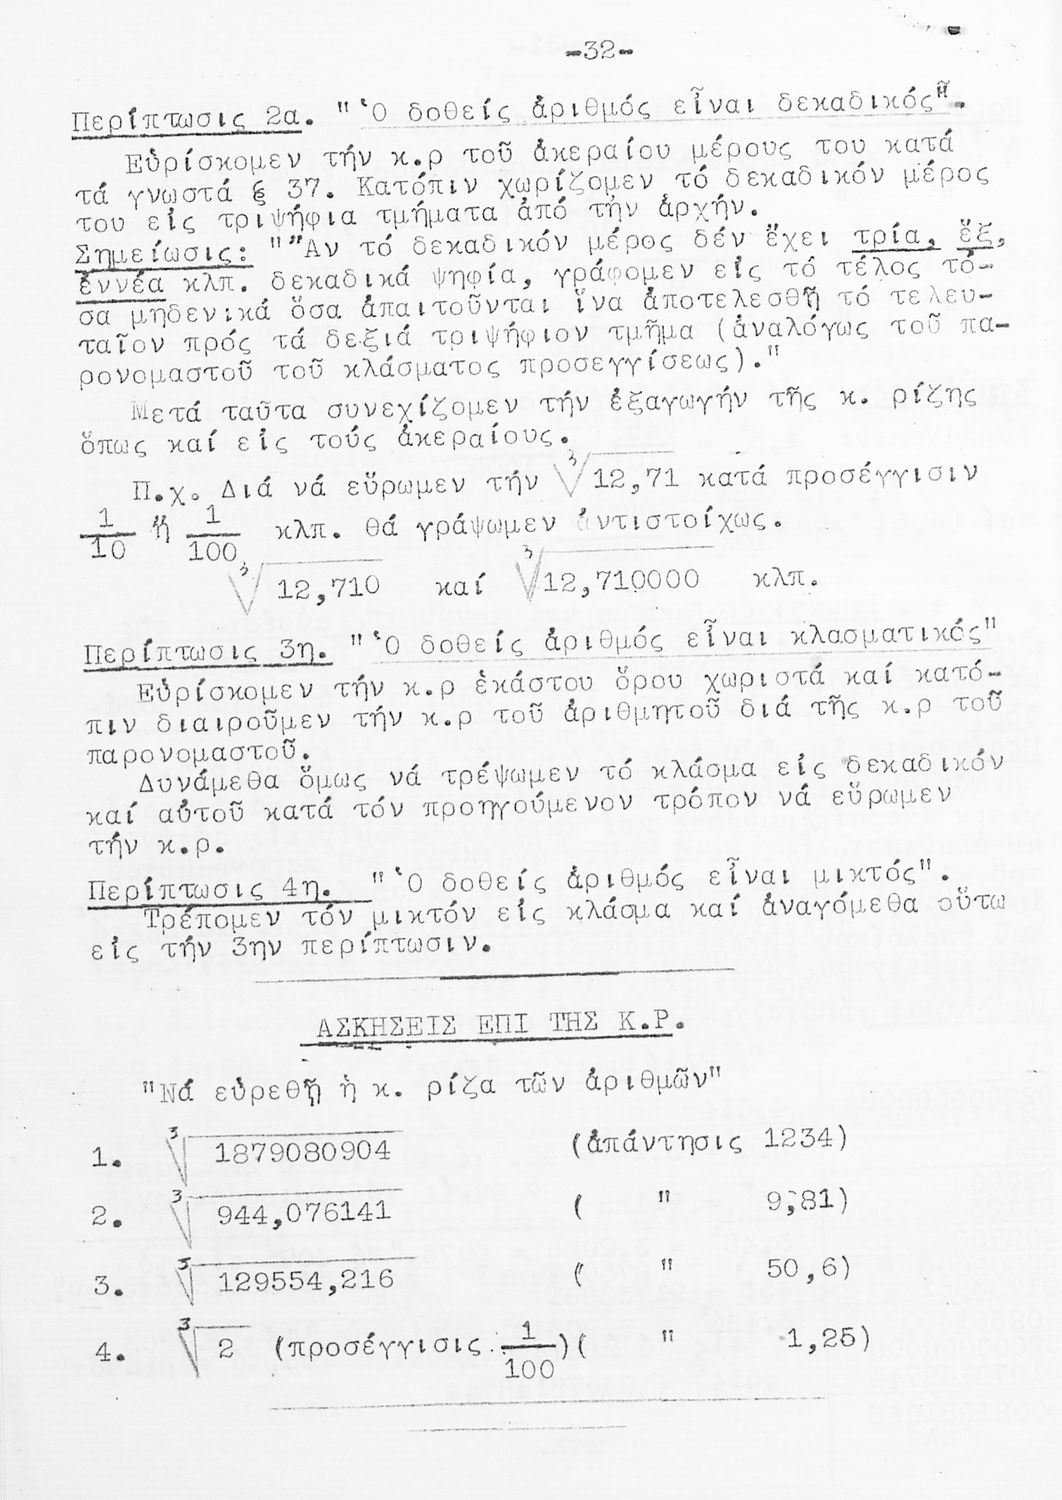 -32-
Περίπτωσις 2α. "Ὁ δοθείς ἀριθμός εἶναι δεκαδικός".
Εὑρίσκομεν τήν κ.ρ τοῦ ἀκεραίου μέρους του κατά
τά γνωστά § 37. Κατόπιν χωρίζομεν τό δεκαδικόν μέρος
του εἰς τριψήφια τμήματα ἀπό τήν ἀρχήν.
Σημείωσις: "Ἄν τό δεκαδικόν μέρος δέν ἔχει τρία, ἕξ,
ἐννέα κλπ. δεκαδικά ψηφία, γράφομεν εἰς τό τέλος τό-
σα μηδενικά ὅσα ἀπαιτοῦνται ἵνα ἀποτελεσθῇ τό τελευ-
ταῖον πρός τά δεξιά τριψήφιον τμῆμα (ἀναλόγως τοῦ πα-
ρονομαστοῦ τοῦ κλάσματος προσεγγίσεως)."
Μετά ταῦτα συνεχίζομεν τήν ἐξαγωγήν τῆς κ. ρίζης
ὅπως καί εἰς τούς ἀκεραίους.
Π.χ. Διά νά εὕρωμεν τήν ∛12,71 κατά προσέγγισιν
1/10 ἤ 1/100 κλπ. θά γράψωμεν ἀντιστοίχως.
∛12,710 καί ∛12,710000 κλπ.
Περίπτωσις 3η. "Ὁ δοθείς ἀριθμός εἶναι κλασματικός"
Εὑρίσκομεν τήν κ.ρ ἑκάστου ὅρου χωριστά καί κατό-
πιν διαιροῦμεν τήν κ.ρ τοῦ ἀριθμητοῦ διά τῆς κ.ρ τοῦ
παρονομαστοῦ.
Δυνάμεθα ὅμως νά τρέψωμεν τό κλάσμα εἰς δεκαδικόν
καί αὐτοῦ κατά τόν προηγούμενον τρόπον νά εὕρωμεν
τήν κ.ρ.
Περίπτωσις 4η. "Ὁ δοθείς ἀριθμός εἶναι μικτός".
Τρέπομεν τόν μικτόν εἰς κλάσμα καί ἀναγόμεθα οὕτω
εἰς τήν 3ην περίπτωσιν.
ΑΣΚΗΣΕΙΣ ΕΠΙ ΤΗΣ Κ.Ρ.
"Νά εὑρεθῇ ἡ κ. ρίζα τῶν ἀριθμῶν"
1. ∛1879080904 (ἀπάντησις 1234)
2. ∛944,076141 ( " 9,81)
3. ∛129554,216 ( " 50,6)
4. ∛2 (προσέγγισις 1/100)( " 1,25)